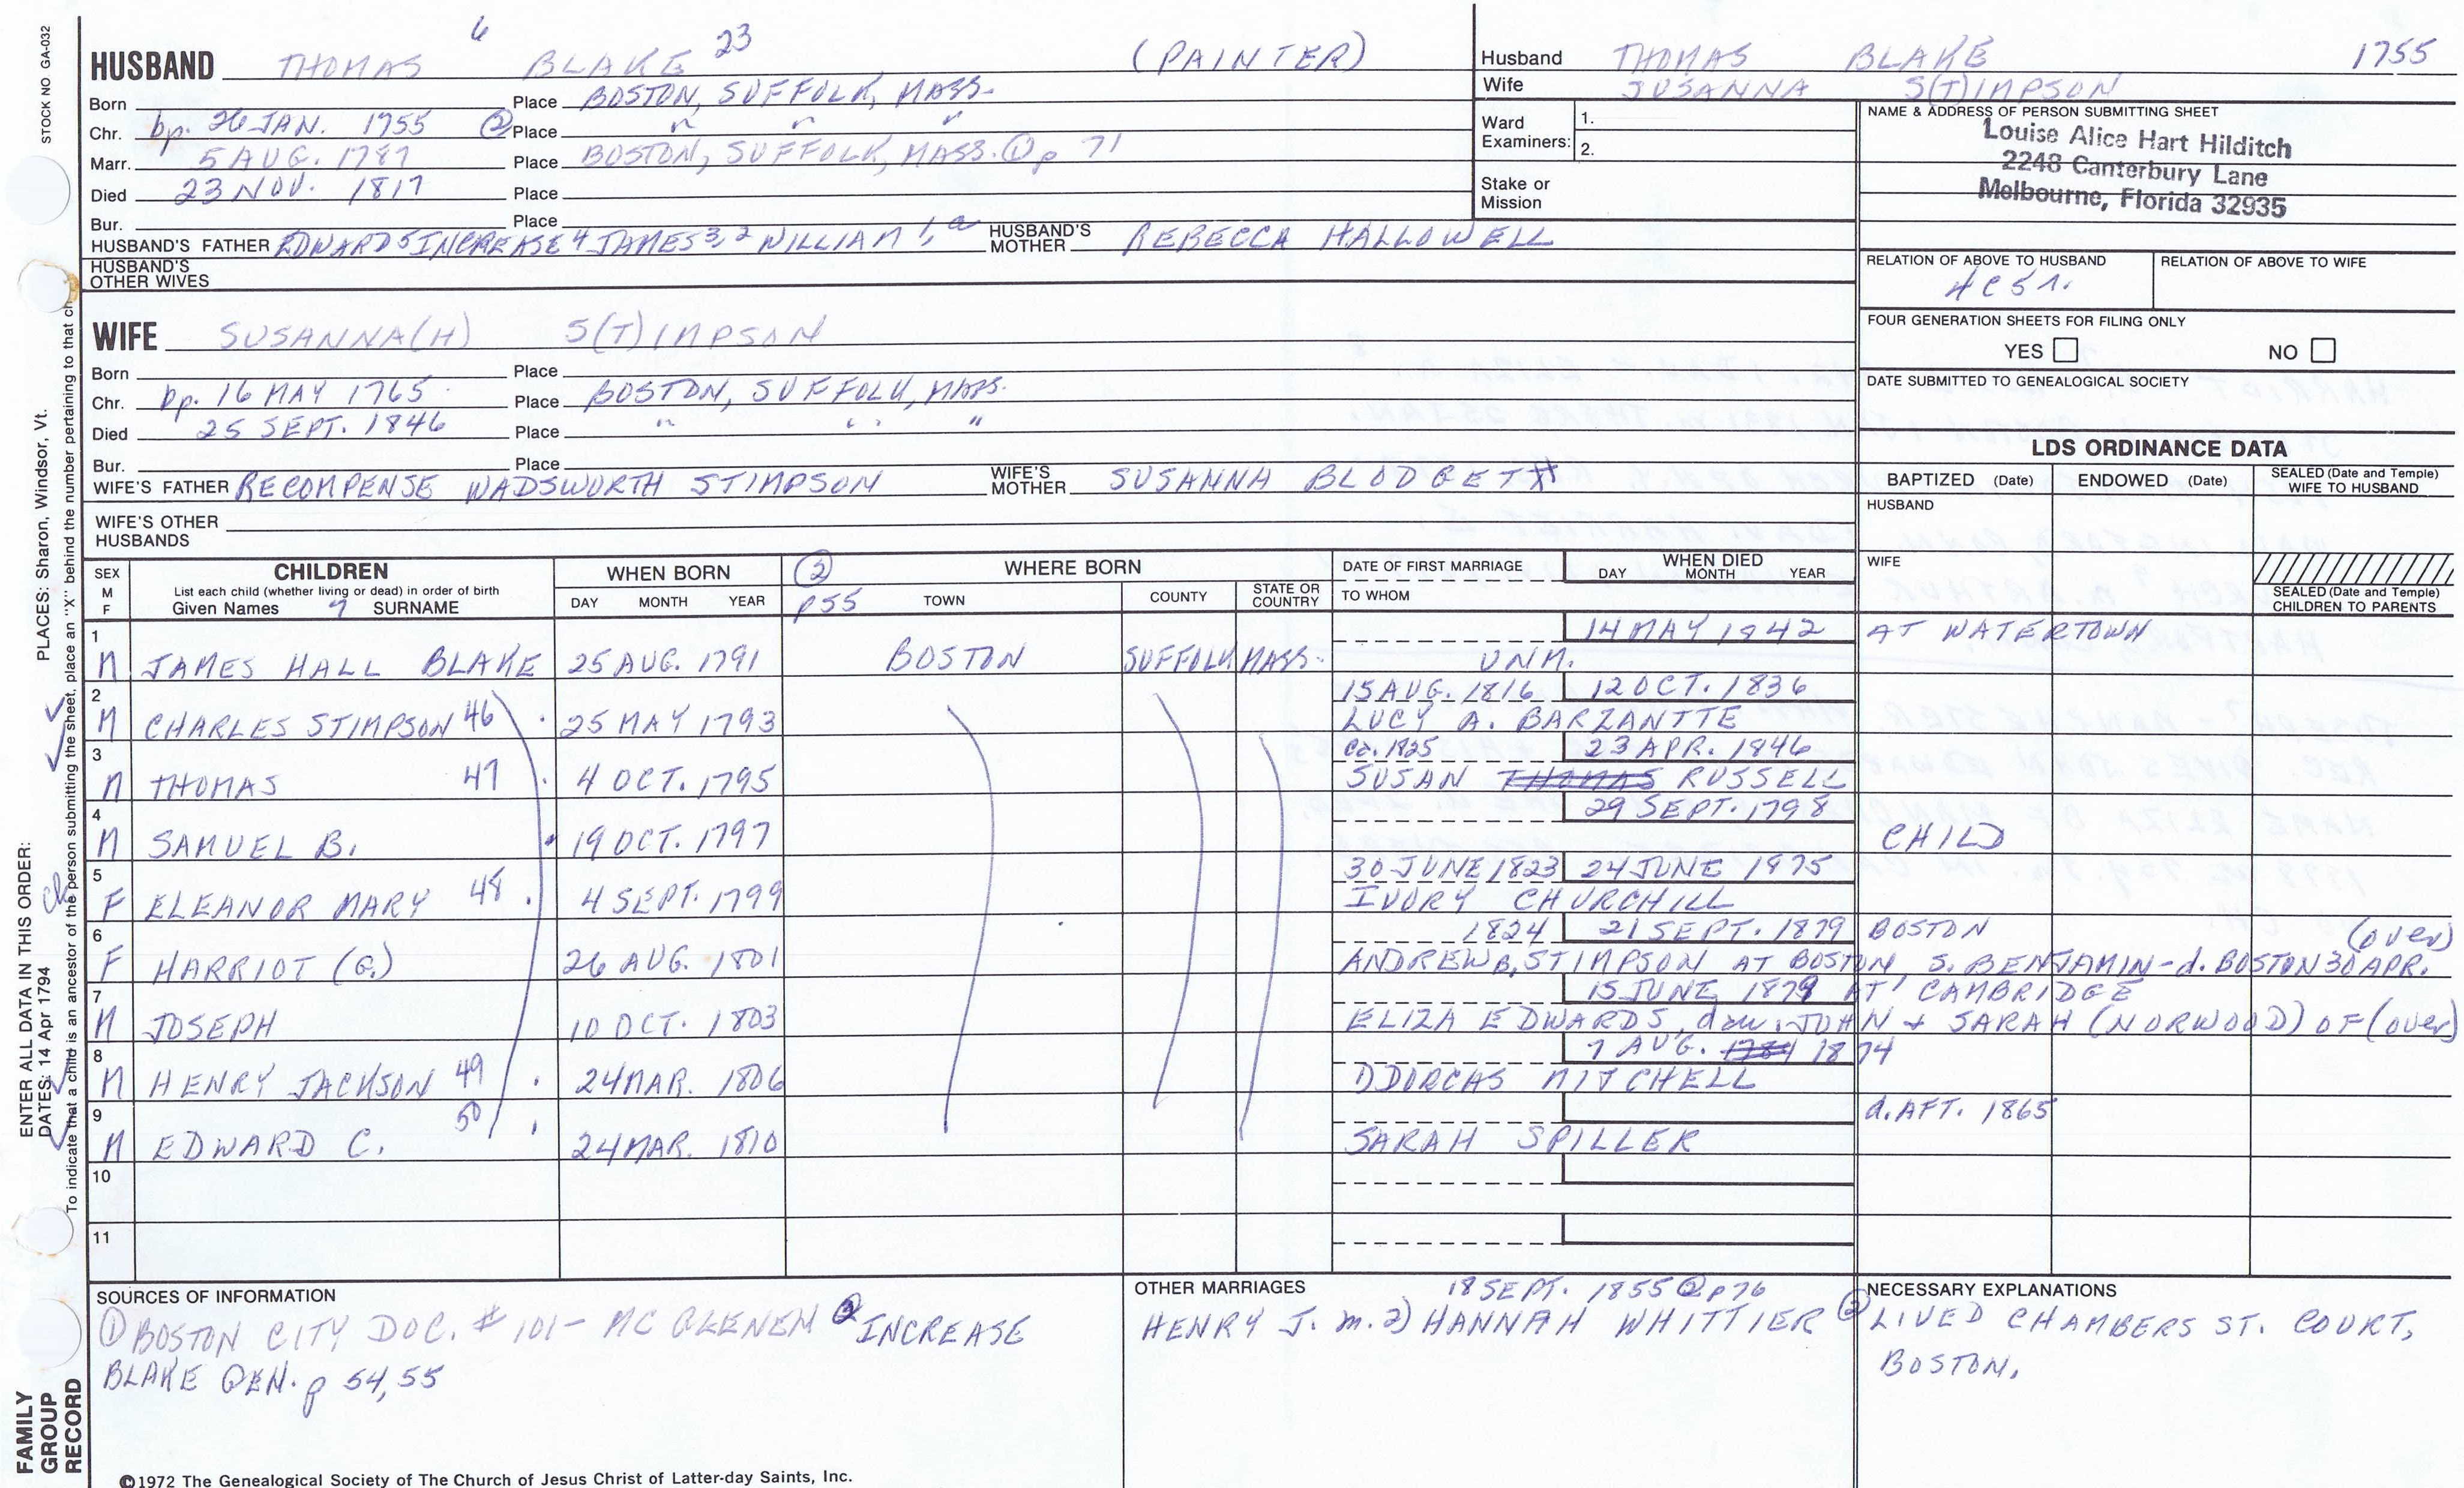 STOCK NO GA-032
PLACES: Sharon, Windsor, Vt.
ENTER ALL DATA IN THIS ORDER:
DATES: 14 Apr 1794
To indicate that a child is an ancestor of the person submitting the sheet, place an "X" behind the number pertaining to that ch
FAMILY GROUP RECORD
HUSBAND THOMAS 6 BLAKE 23 (PAINTER)
Born Place BOSTON, SUFFOLK, MASS.
Chr. bp. 26 JAN. 1755 ② Place " " "
Marr. 5 AUG. 1787 Place BOSTON, SUFFOLK, MASS. ① p 71
Died 23 NOV. 1817 Place
Bur. Place
HUSBAND'S FATHER EDWARD 5 INCREASE 4 JAMES 3, 2 WILLIAM 1, a HUSBAND'S MOTHER REBECCA HALLOWELL
HUSBAND'S OTHER WIVES
Husband THOMAS BLAKE 1755
Wife SUSANNA S(T)IMPSON
Ward Examiners: 1.
2.
Stake or Mission
NAME & ADDRESS OF PERSON SUBMITTING SHEET
Louise Alice Hart Hilditch
2248 Canterbury Lane
Melbourne, Florida 32935
RELATION OF ABOVE TO HUSBAND RELATION OF ABOVE TO WIFE
4C5r.
FOUR GENERATION SHEETS FOR FILING ONLY
YES NO
DATE SUBMITTED TO GENEALOGICAL SOCIETY
WIFE SUSANNA(H) S(T)IMPSON
Born Place
Chr. bp. 16 MAY 1765. Place BOSTON, SUFFOLK, MASS.
Died 25 SEPT. 1846 Place " " "
Bur. Place
WIFE'S FATHER RECOMPENSE WADSWORTH STIMPSON WIFE'S MOTHER SUSANNA BLODGETT
WIFE'S OTHER HUSBANDS
LDS ORDINANCE DATA
BAPTIZED (Date) ENDOWED (Date) SEALED (Date and Temple) WIFE TO HUSBAND
HUSBAND
WIFE
SEALED (Date and Temple) CHILDREN TO PARENTS
SEX M F CHILDREN
List each child (whether living or dead) in order of birth
Given Names 7 SURNAME
WHEN BORN
DAY MONTH YEAR
② p55 WHERE BORN
TOWN COUNTY STATE OR COUNTRY
DATE OF FIRST MARRIAGE
TO WHOM
WHEN DIED
DAY MONTH YEAR
1 14 MAY 1842 AT WATERTOWN
M JAMES HALL BLAKE 25 AUG. 1791 BOSTON SUFFOLK MASS. UNM.
2 15 AUG. 1816 12 OCT. 1836
M CHARLES STIMPSON 46 25 MAY 1793 LUCY A. BARZANTTE
3 ca. 1825 23 APR. 1846
M THOMAS 47 4 OCT. 1795 SUSAN THOMAS RUSSELL
4 29 SEPT. 1798
M SAMUEL B. 19 OCT. 1797 CHILD
5 30 JUNE 1823 24 JUNE 1875
F ELEANOR MARY 48 4 SEPT. 1799 IVORY CHURCHILL
6 1824 21 SEPT. 1879 BOSTON (over)
F HARRIOT (G.) 26 AUG. 1801 ANDREW B. STIMPSON AT BOSTON, S. BENJAMIN - d. BOSTON 30 APR.
7 15 JUNE 1879 AT CAMBRIDGE
M JOSEPH 10 OCT. 1803 ELIZA EDWARDS, dau. JOHN + SARAH (NORWOOD) OF (over)
8 7 AUG. 1784 1874
M HENRY JACKSON 49 24 MAR. 1806 DDORCAS MITCHELL
9 d. AFT. 1865
M EDWARD C. 50 24 MAR. 1810 SARAH SPILLER
10
11
SOURCES OF INFORMATION
① BOSTON CITY DOC. # 101- MC GLENEN ② INCREASE
BLAKE GEN. p 54, 55
OTHER MARRIAGES 18 SEPT. 1855 ② p 76
HENRY J. m. 2) HANNAH WHITTIER
NECESSARY EXPLANATIONS
② LIVED CHAMBERS ST. COURT,
BOSTON.
©1972 The Genealogical Society of The Church of Jesus Christ of Latter-day Saints, Inc.